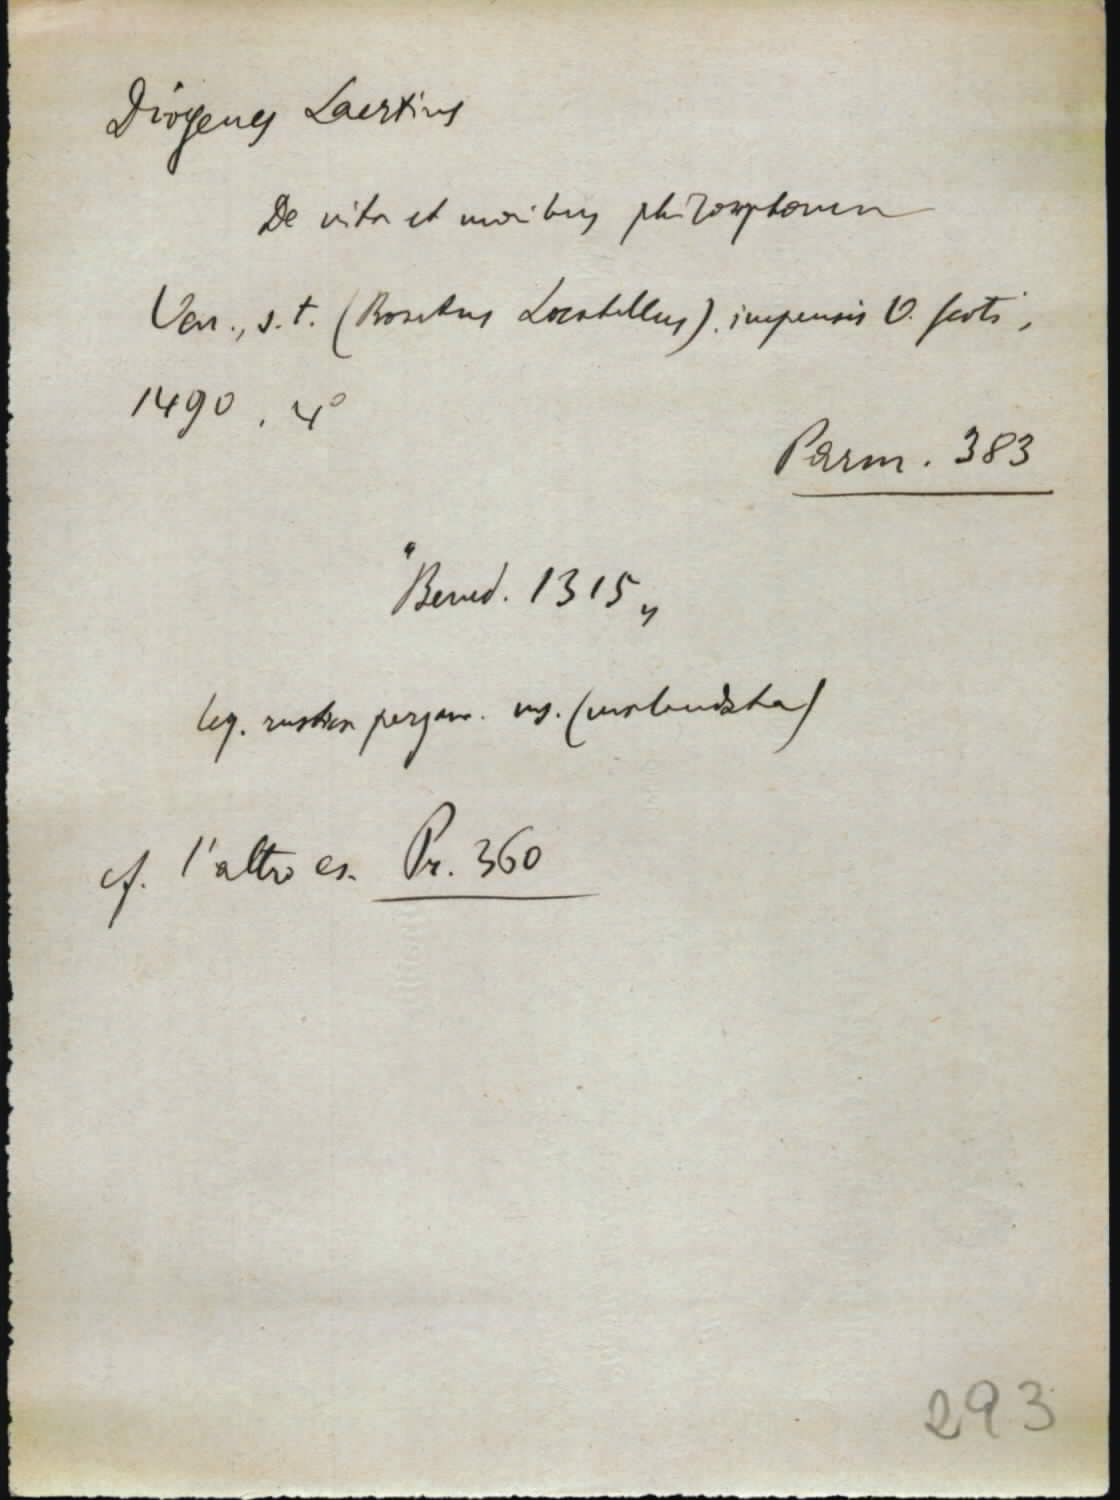 Diogenes Laertius
De vita et moribus philosophorum
Ven., s.t. (Bonetus Locatellus). impensis O. Scoti,
1490. 4°
Parm. 383
"Bened. 1315"
leg. rustica pergam. ms.
cf. l'altro es. Pr. 360
293